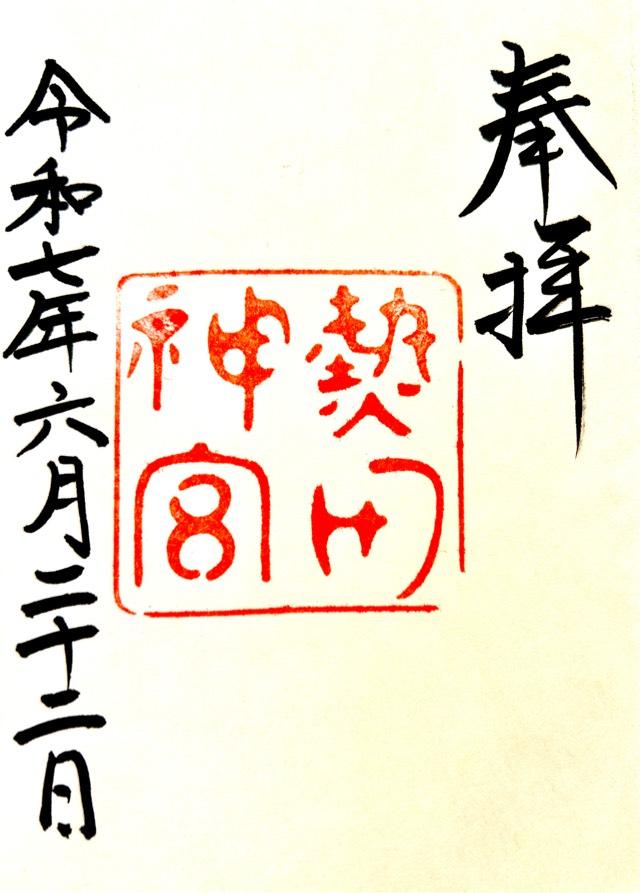 奉拝
熱田
神宮
令和七年六月二十二日